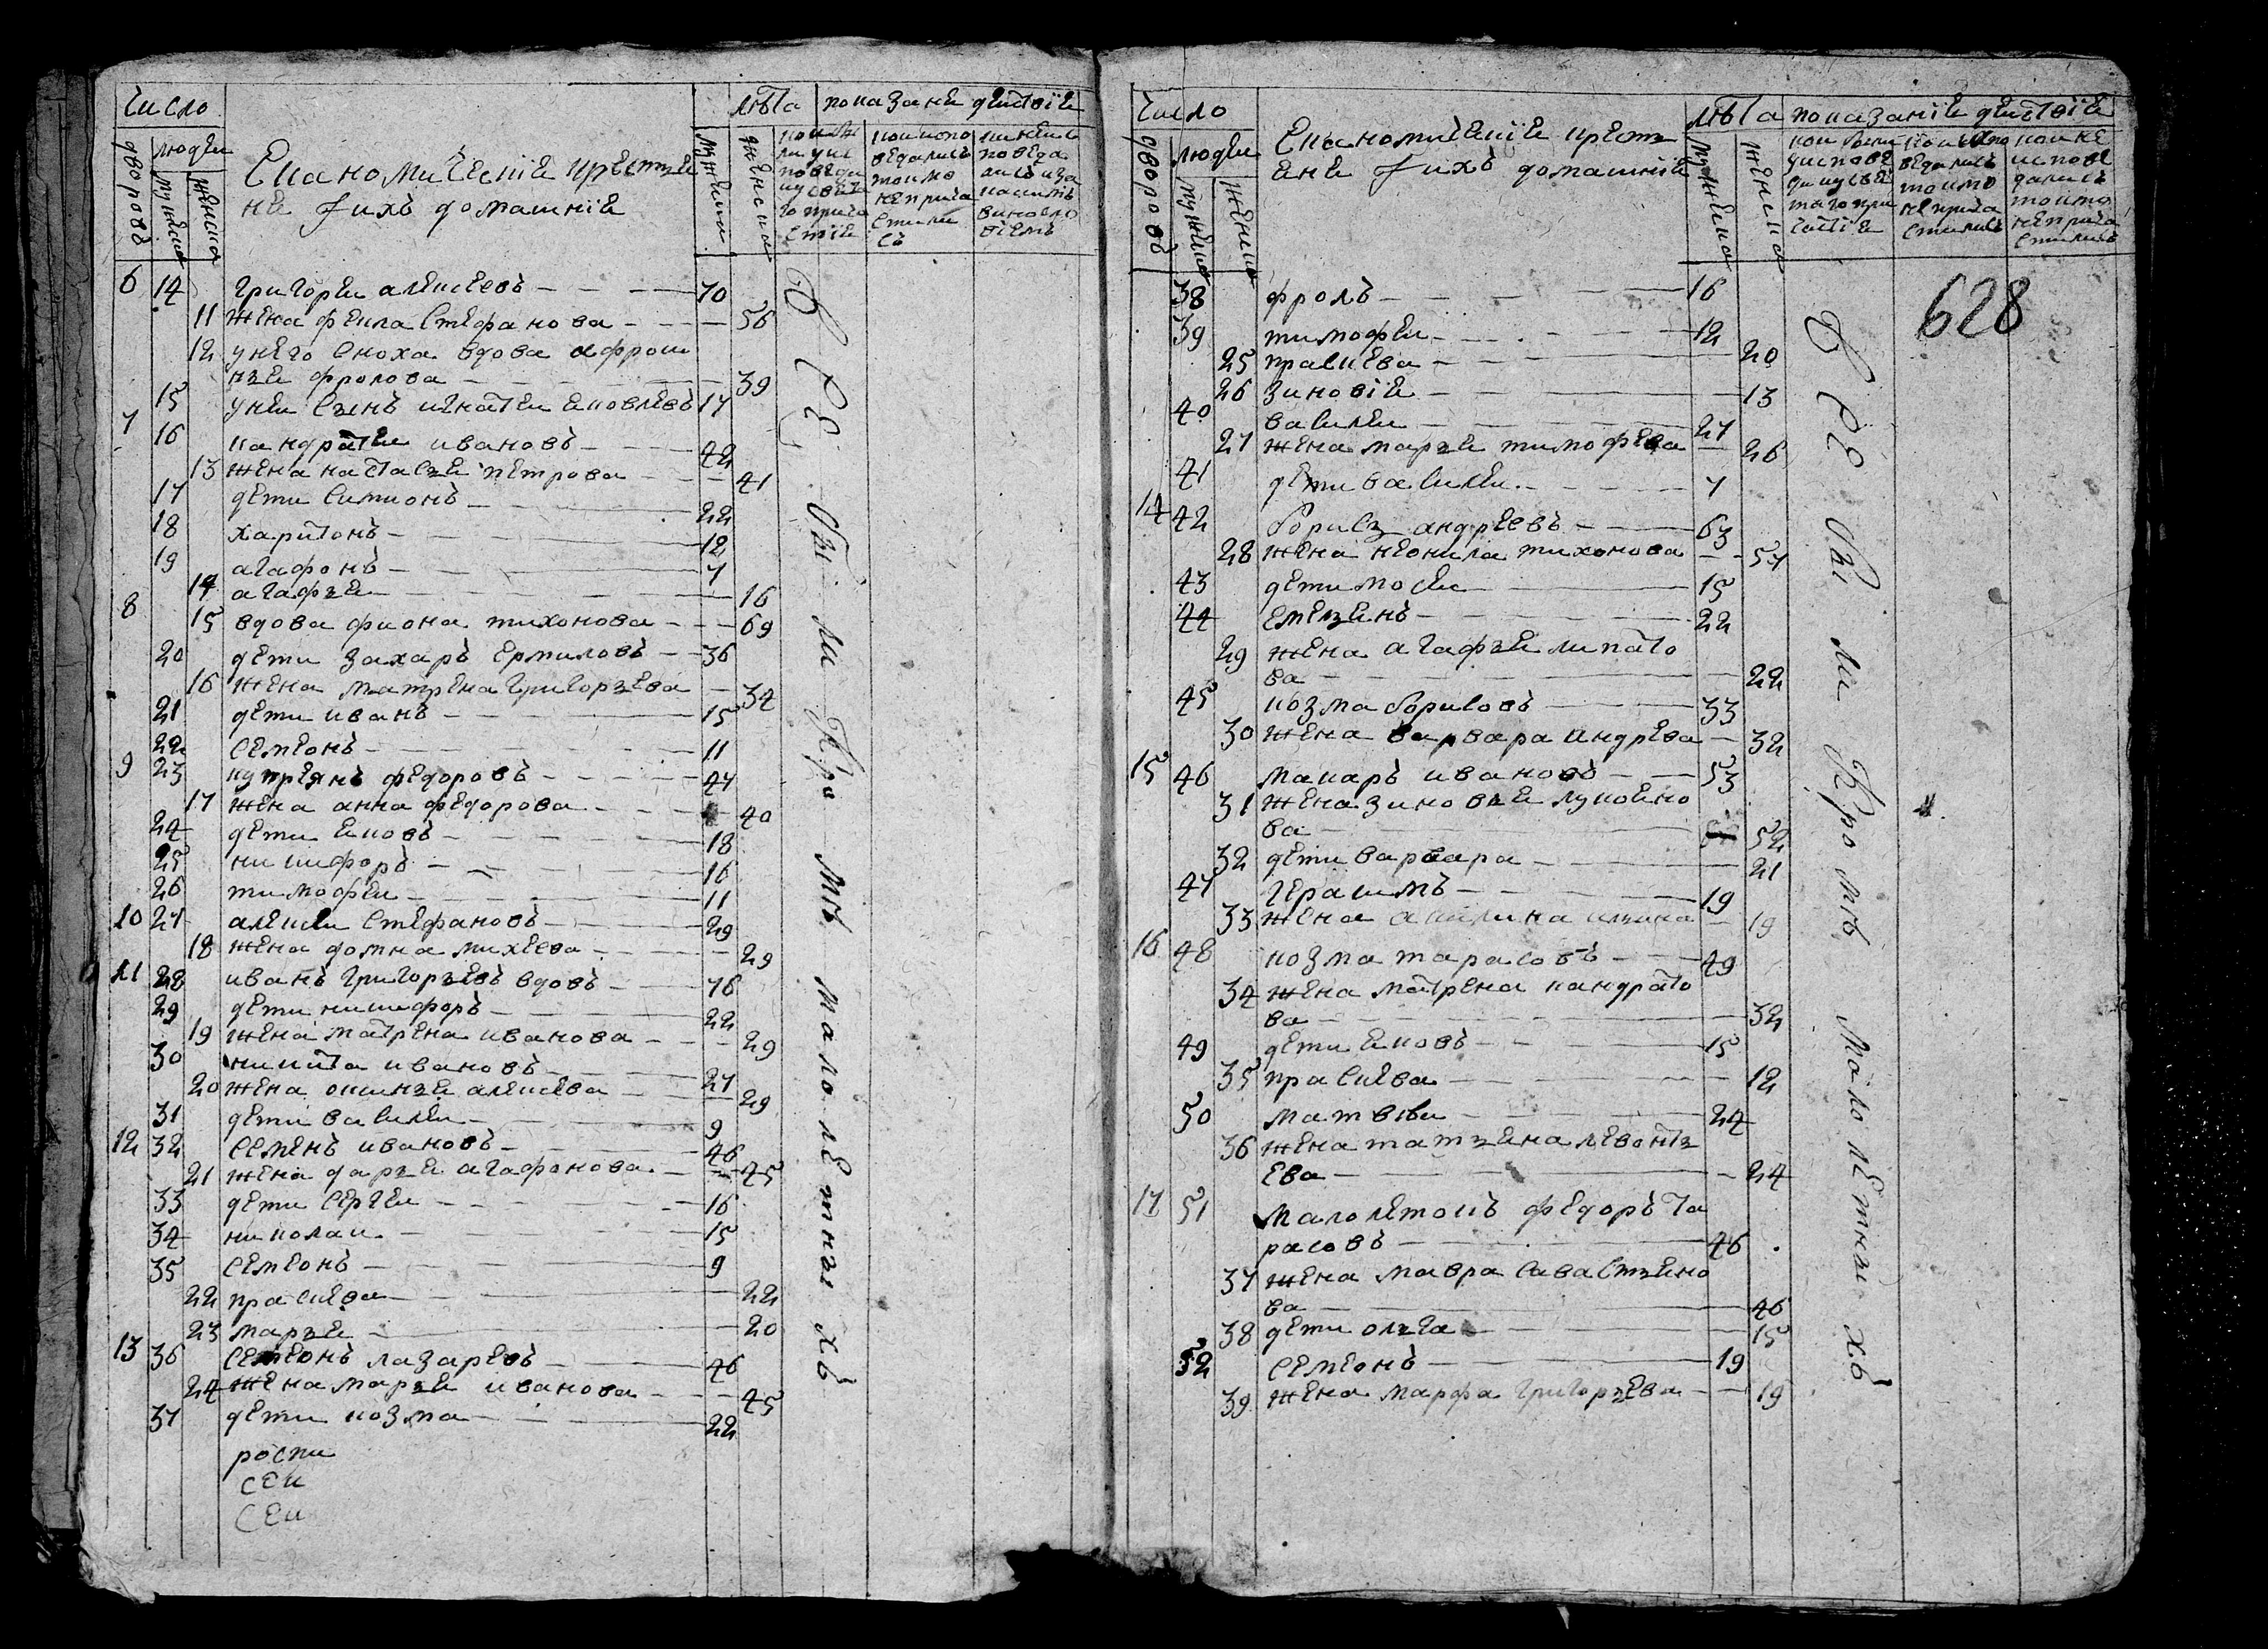 число
лѣта показание действіе
дворовъ
людеи
мужеска
женска
Економическіе крестья
не ѵихъ домашніе
мужески
женска
6 14 григореи алексеевъ 70
11 жена фекла стефанова 56
12 унего сноха вдова афроси
нья фролова 39
15 унеи сынъ игнатеи яковлевъ 17
7 16 кандратеи ивановъ 42
13 жена настасья петрова 41
17 дети симионъ 22
18 харитонъ 12
19 агафонъ 7
14 агафья 16
8 15 вдова фиона тихонова 69
20 дети захаръ ермиловъ 36
16 жена матрена григорьева 34
21 дети иванъ 15
22 семионъ 11
9 23 купреянъ федоровъ 47
17 жена анна федорова 40
24 дети яковъ 18
25 никифоръ 16
26 тимофеи 11
10 27 алексеи стефановъ 29
18 жена домна михеева 29
11 28 иванъ григорьевъ вдовъ 76
29 дети никифоръ 22
19 жена матрена иванова 29
30 никита ивановъ 27
20 жена оксинья алексева 29
31 дети василеи 9
12 32 семенъ ивановъ 46
21 жена дарья агафонова 45
33 дети сергеи 16
34 николаи 15
35 семионъ 9
22 праскева 22
23 марья 20
13 36 семионъ лазаревъ 46
24 жена марья иванова 45
37 дети козма 22
роспи
сеи
сеи
Все были кроме малолетныхъ
число
лѣта показаніе действіе
дворовъ
людеи
мужеска
женска
Економическіе крестья
яне ѵихъ домашніе
мужеска
женска
628
38 фролъ 16
39 тимофеи 12
25 праскева 20
26 зиновіе 13
40 василеи 27
27 жена марья тимофева 26
41 дети василеи 7
14 42 борисъ андреевъ 63
28 жена неонила тихонова 57
43 дети мосеи 15
44 емельянъ 22
29 жена агафья липато
ва 22
45 козма борисовъ 33
30 жена варвара андрева 32
15 46 макаръ ивановъ 53
31 жена зиновья лукояно
ва 52
32 дети варвара 21
47 герасимъ 19
33 жена акилина ильина 19
16 48 козма тарасовъ 49
34 жена матрена кандрато
ва 32
49 дети яковъ 15
35 праскева 12
50 матвѣи 24
36 жена татьяна левонть
ева 24
17 51 малолетокъ федоръ та
расовъ 46
37 жена мавра савастьяно
ва 46
38 дети ольга 15
52 семионъ 19
39 жена марфа григорьева 19
Все были кроме малолетныхъ